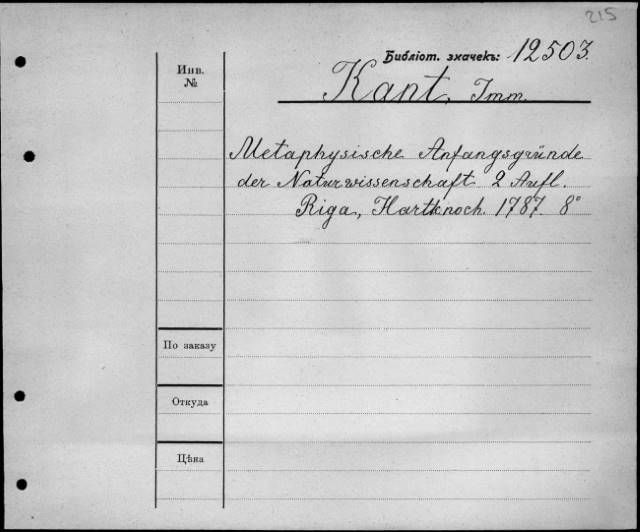 215
Библіот. значекъ: 12503.
Инв.
№
Kant, Imm.
Metaphysische Anfangsgründe
der Naturwissenschaft 2 Aufl.
Riga, Hartknoch. 1787. 8°
По заказу
Откуда
Цѣна